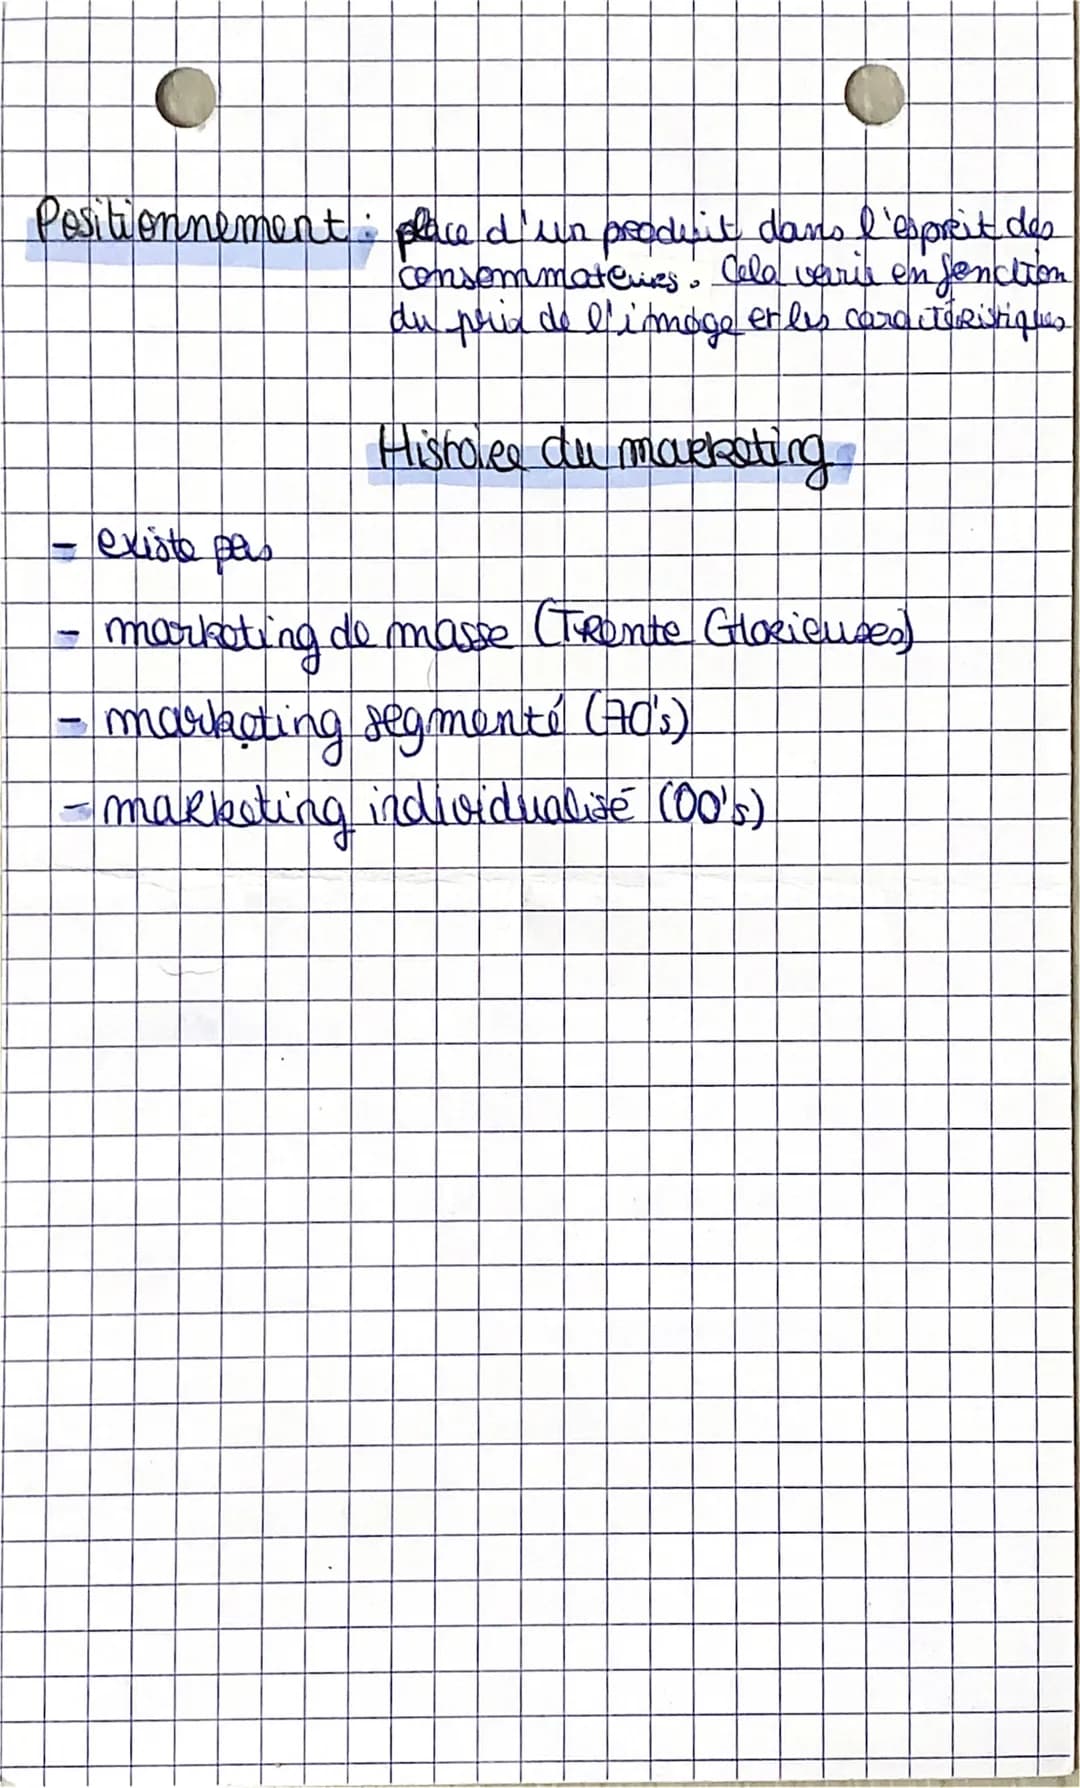 Positionnement : place d'un produit dans l'esprit des
consommateurs. Cela varie en fonction
du prix de l'image et les caractéristiques
Histoire du marketing
- existe pas
- marketing de masse (Trente Glorieuses)
- marketing segmenté (70's)
- marketing individualisé (00's)